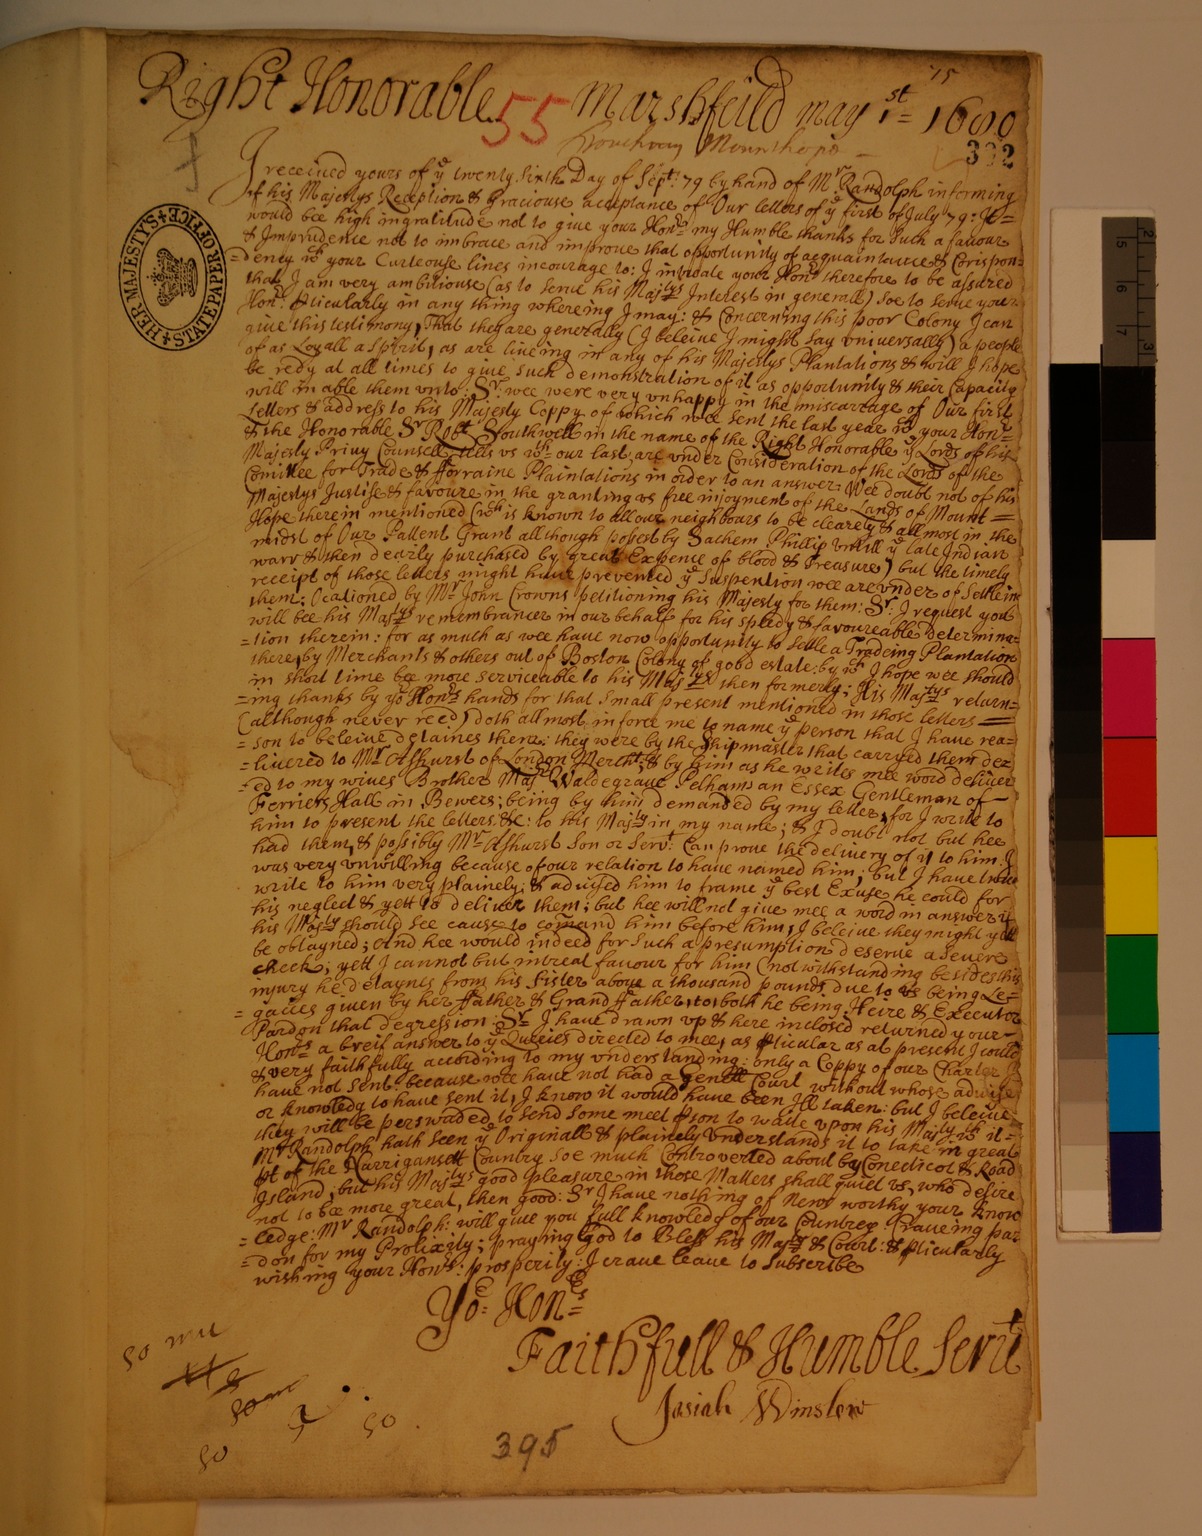 75
Right Honorable. 55 Marshfeild may 1st = 1680
332
Touching Mounthope
I received yours of ye twenty Sixth Day of Sept: 79 by hand of Mr Randolph informing
of his Majestys Reception & Graciouse acceptance of Our letters of ye first of July 79: It=
would bee high ingratitude not to give your Honr my Humble thanks for Such a favour
& Imprudence not to imbrace and improve that opportunity of acquaintance & Corispon=
=dency wch your Curteouse lines incourage to: I intreate your Honr therefore to be assured
that I am very ambitiouse (as to Serve his Majtys Interest in generall) Soe to Serve your
Honr: pticularly in any thing whereing I may: & Concerning this poor Colony I can
give this testimony, That they are generally (I beleive I might Say vniversally) a people
of as Loyall a Spirit, as are liveing in any of his Majestys Plantations & will I hope
be redy at all times to give Such demonstration of it as opportunity & their Capacity
will inable them vnto: Sr wee were very vnhappy in the miscarrage of Our first
Letters & address to his Majesty Coppy of which wee Sent the last year wch your Honr=
& the Honorable Sr Robt Southwell in the name of the Right Honorable ye Lords of his
Majesty Privy Counsell tells vs wth our last, are vnder Consideration of the Lords of the
Comittee for Trade & fforraine Plaintations in order to an answer: Wee doubt not of his
Majestys Justise & favoure in the granting vs free injoyment of the Lands of Mount=
Hope therein mentioned (wch is known to all our neighbours to be clearely & allmost in the
midst of Our Pattent Grant allthough posest by Sachem Phillip vntill ye late Indian
warr & then dearly purchased by great Expence of blood & Treasure) but the timely
receipt of those letters might have prevented ye Suspention wee are vnder of Setleing
them: Ocationed by Mr John Crowns petitioning his Majesty for them: Sr: I request you
will bee his Majtys remembrancer in our behalf for his Spedy & favoureable determina=
=tion therein: for as much as wee have now opportunity to Setle a Tradeing Plantation
there, by Merchants & others out of Boston Colony of good estate: by wch I hope wee should
in Short time bee more Serviceable to his Majtys then formerly: His Majtys return=
=ing thanks by yor Honrs hands for that Small present mentioned in those letters =
(although never reed) doth allmost inforce me to name ye person that I have rea=
=son to beleive detaines them: they were by the Shipmaster that carryed them de=
=livered to Mr Ashurst of London Mercht, & by him as he writes mee word deliver
=ed to my wives Brother Majr Waldegrave Pelham an Essex Gentleman of
Ferriers Hall in Bewers; being by him demanded by my letter, for I write to
him to present the letters &c: to his Majty in my name; & I doubt not but hee
had them, & possibly Mr Ashurst Son or Servt: Can prove the delivery of it to him: I
was very vnwilling because of our relation to have named him; but I have twice
write to him very plainely: & advised him to frame ye best Excuse he could for
his neglect & yett to deliver them; but hee will not give mee a word in answer if
his Majty should See cause to comand him before him, I beleive they might yett
be obtayned; And hee would indeed for Such a presumption deserve a Severe
check; yett I cannot but intreat favour for him (notwithstanding besides this
injury he detaynes from his Sister above a thousand pounds due to vs being Le=
=gacies given by her ffather & Grand ffather, to both he being Heire & Executor
Pardon that degression: Sr I have drawn vp & here inclosed returned your
Honrs a breif answer to ye Queries directed to mee, as pticular as at present I could
& very faithfully according to my vnderstanding: only a Coppy of our Charter I
have not Sent: because wee have not had a Genell Court without whose advise
or knowledg to have sent it, I know it would have been Ill taken: but I beleive
they will be perswaded to Send Some meet pson to waite vpon his Majty wth it=
Mr Randolph hath Seen ye Originall & plainely vnderstands it to take in great
pt of the Narrigansett Country Soe much Controverted about by Conecticot & Road
Island; but his Majtys good pleasure in those Matters shall quiet vs, who desire
not to bee more great, then good: Sr I have nothing of News worthy your know
=ledge: Mr Randolph: will give you full knowledg of our Countrey: Craveing par
=don for my Prolixity; praying God to Bless his Majty & Court: & pticularly
wishing your Honrs: prosperity: I crave leave to Subscribe
Yor Honrs
Faithfull & Humble Servt
Josiah Winslow
HER MAJESTY'S STATE PAPER OFFICE
50
50
50
50
395